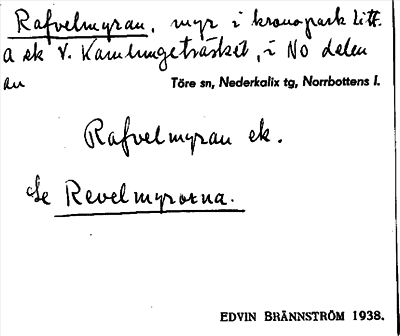 Rafvelmyran, myr i kronopark litt.
a ek V. Kamlungeträsket, i NO delen
av Töre sn, Nederkalix tg, Norrbottens l.
Rafvelmyran ek.
Se Revelmyrorna.
EDVIN BRÄNNSTRÖM 1938.